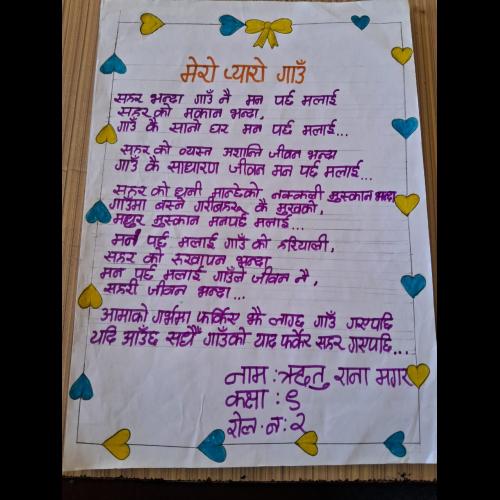 मेरो प्यारो गाउँ
सहर भन्दा गाउँ नै मन पर्छ मलाई
सहर को मकान भन्दा,
गाउँ कै सानो घर मन पर्छ मलाई...
सहर को व्यस्त अशान्ति जीवन भन्दा
गाउँ कै साधारण जीवन मन पर्छ मलाई...
सहर को धनी मान्छेको नक्कली मुस्कान भन्दा
गाउँमा बस्ने गरीबहरु कै मुखको,
मधुर मुस्कान मनपर्छ मलाई...
मन पर्छ मलाई गाउँ को हरियाली,
सहर को रुखापन भन्दा
मन पर्छ मलाई गाउँले जीवन नै,
सहरी जीवन भन्दा...
आमाको गर्भमा फर्किए झै लाग्छ गाउँ गएपछि
यदि आउँछ सधैँ गाउँको याद फर्केर सहर गएपछि...
नाम : ऋतु राना मगर
कक्षा : ९
रोल.न : २